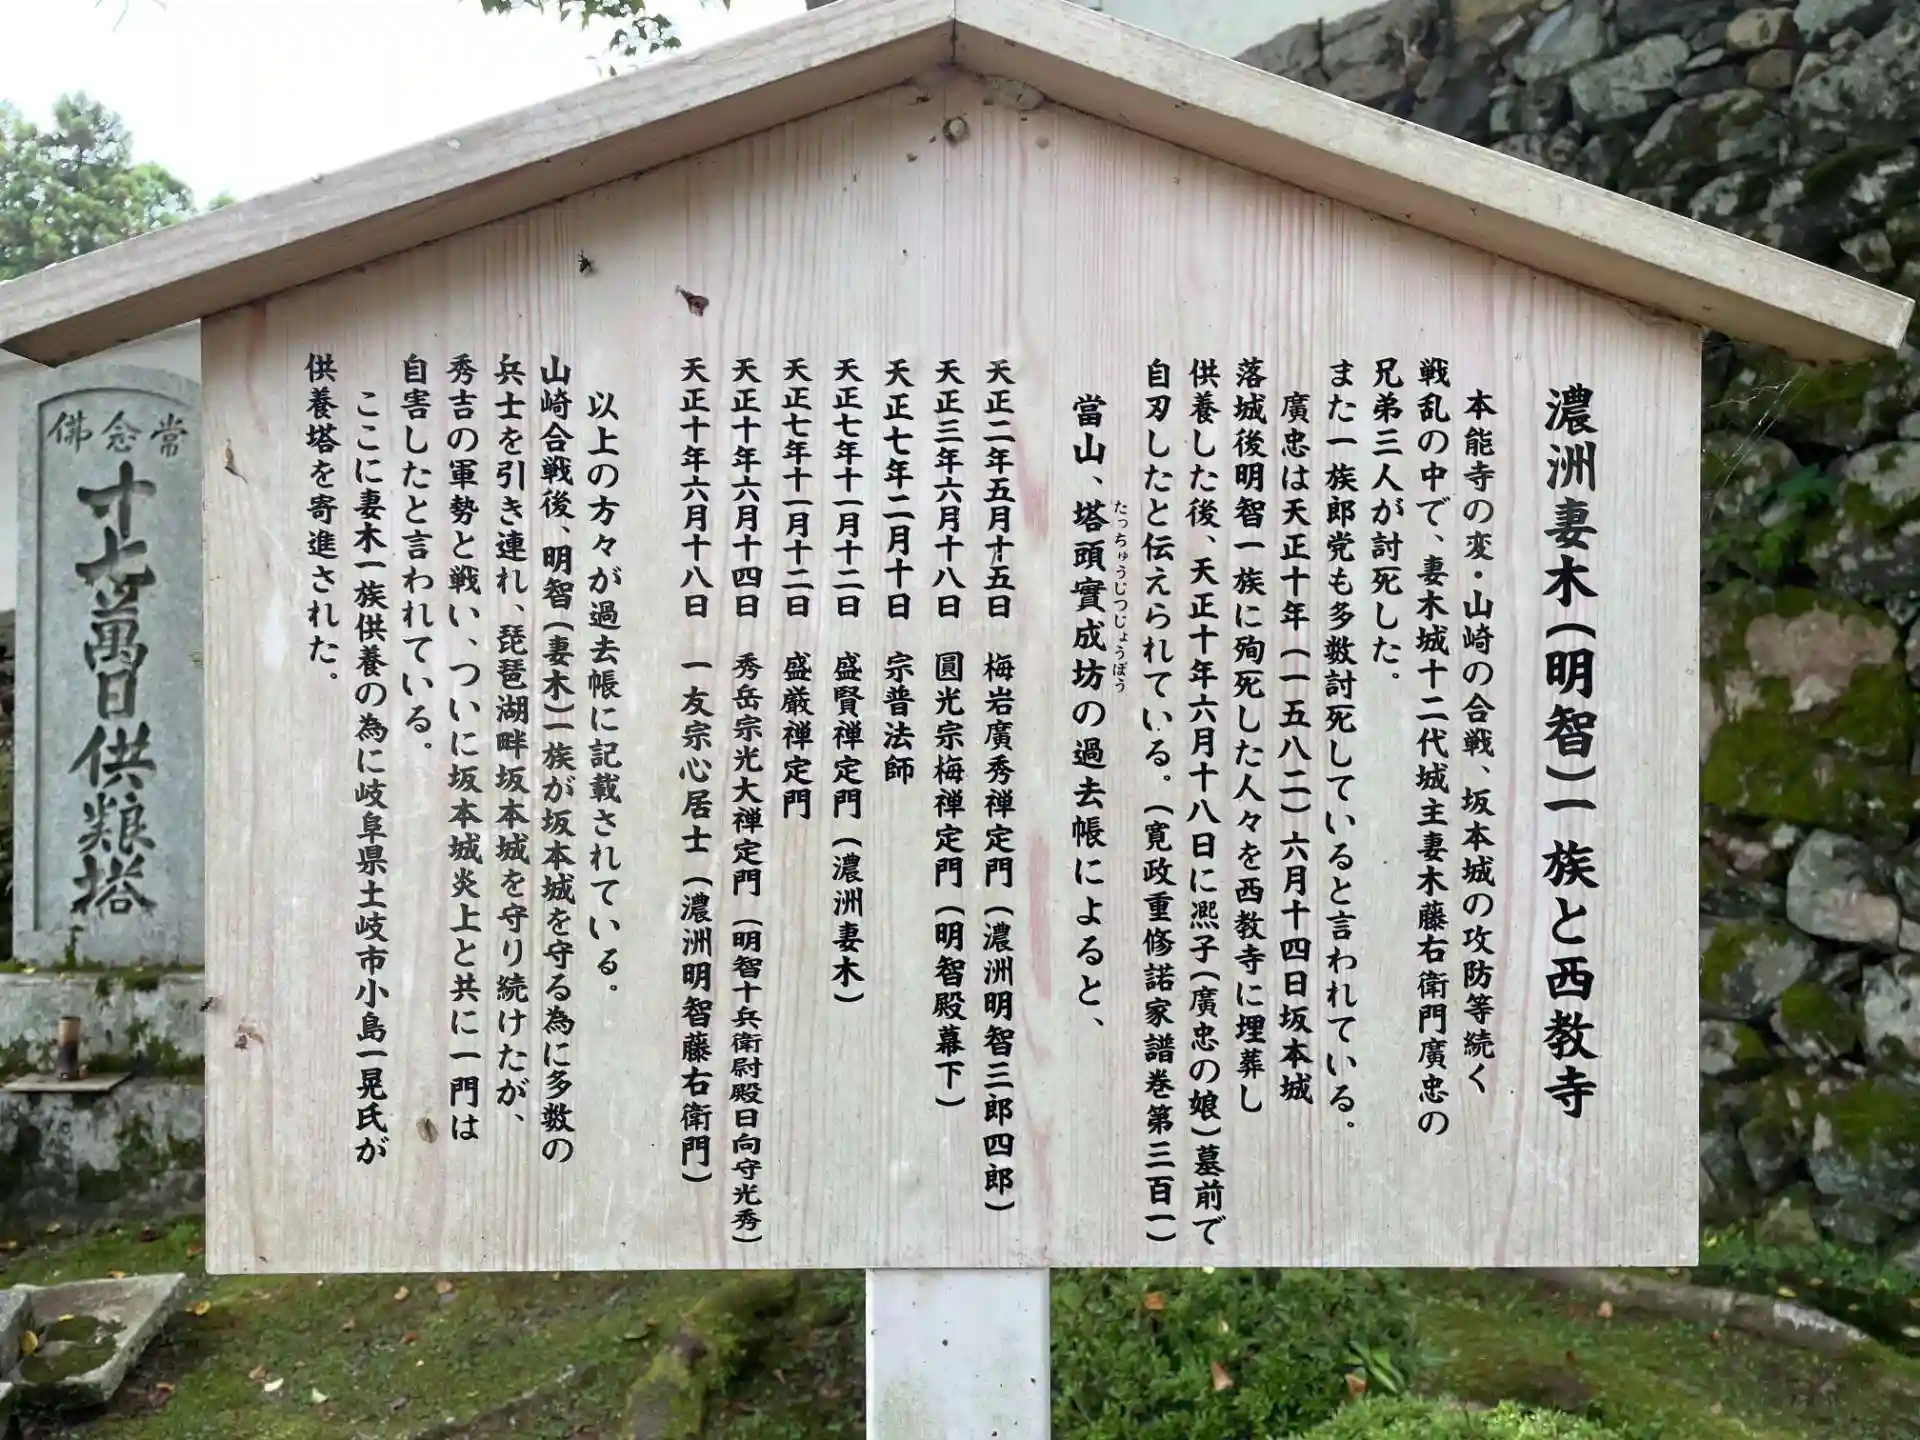 濃洲妻木(明智)一族と西教寺
本能寺の変・山崎の合戦、坂本城の攻防等続く
戦乱の中で、妻木城十二代城主妻木藤右衛門廣忠の
兄弟三人が討死した。
また一族郎党も多数討死していると言われている。
廣忠は天正十年(一五八二)六月十四日坂本城
落城後明智一族に殉死した人々を西教寺に埋葬し
供養した後、天正十年六月十八日に凞子(廣忠の娘)墓前で
自刃したと伝えられている。(寛政重修諾家譜巻第三百一)
當山、塔頭實成坊の過去帳によると、
たっちゅうじつじょうぼう
天正二年五月十五日 梅岩廣秀禅定門(濃洲明智三郎四郎)
天正三年六月十八日 圓光宗梅禅定門(明智殿幕下)
天正七年二月十日 宗普法師
天正七年十一月十二日 盛賢禅定門(濃洲妻木)
天正七年十一月十二日 盛厳禅定門
天正十年六月十四日 秀岳宗光大禅定門(明智十兵衛尉殿日向守光秀)
天正十年六月十八日 一友宗心居士(濃洲明智藤右衛門)
以上の方々が過去帳に記載されている。
山崎合戦後、明智(妻木)一族が坂本城を守る為に多数の
兵士を引き連れ、琵琶湖畔坂本城を守り続けたが、
秀吉の軍勢と戦い、ついに坂本城炎上と共に一門は
自害したと言われている。
ここに妻木一族供養の為に岐阜県土岐市小島一晃氏が
供養塔を寄進された。
常念佛
十七萬日供粮塔